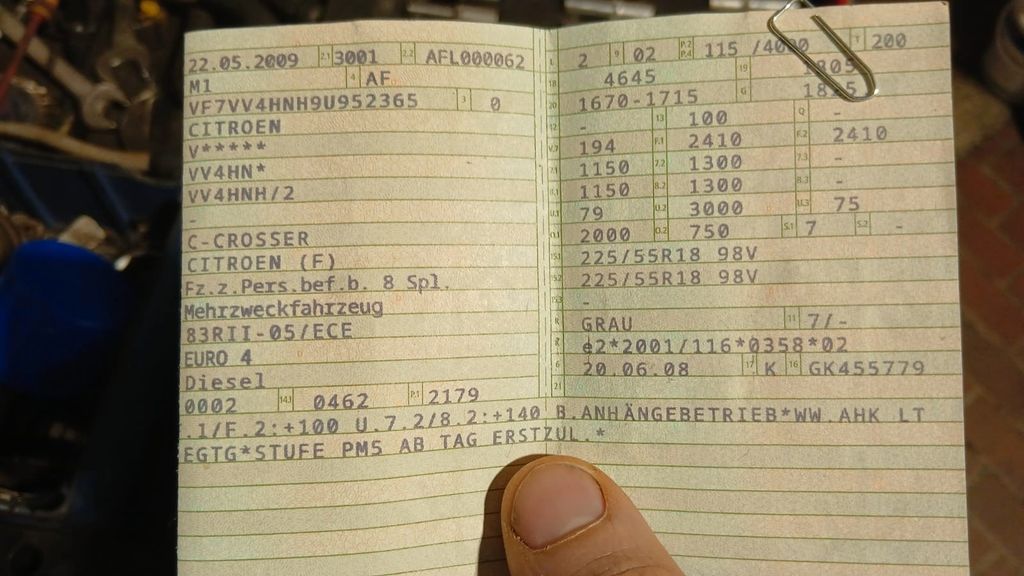 22.05.2009 2.1 3001 2.2 AFL000062
M1 4 AF
VF7VV4HNH9U952365 3 0
CITROEN
V*****
VV4HN*
VV4HNH/2
-
C-CROSSER
CITROEN (F)
Fz.z.Pers.bef.b. 8 Spl.
Mehrzweckfahrzeug
83RII-05/ECE
EURO 4
Diesel
0002 14.1 0462 P.1 2179
L 2 9 02 P.2 P.4 115 /4000 T 200
18 4645 19 1805
20 1670-1715 G 1825
12 - 13 100 Q -
V.7 194 F.1 2410 F.2 2410
7.1 1150 7.2 1300 7.3 -
8.1 1150 8.2 1300 8.3 -
U.1 79 U.2 3000 U.3 75
O.1 2000 O.2 750 S.1 7 S.2 -
15.1 225/55R18 98V
15.2 225/55R18 98V
15.3 -
R GRAU 11 7/-
K e2*2001/116*0358*02
6 20.06.08 17 K 16 GK455779
21
.1/F.2:+100 U.7.2/8.2:+140 B.ANHÄNGEBETRIEB*WW.AHK LT
EGTG*STUFE PM5 AB TAG ERSTZUL.*